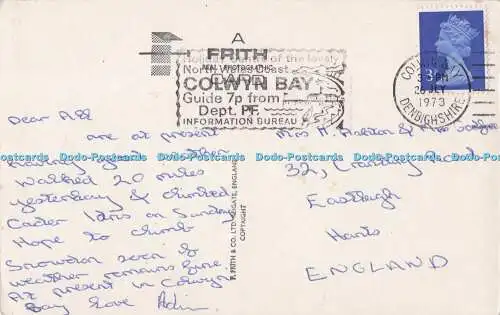 A
FRITH
REAL PHOTOGRAPHIC
CARD
Holiday of the lovely
North Wales Coast
COLWYN BAY
Guide 7p from
Dept. PF.
INFORMATION BUREAU
COLWYN BAY
3 PM
JLY
1973
DENBIGHSHIRE
3
Dear All
are at present
having great weather
Walked 20 miles
yesterday & climbed
Cader Idris on Sunday
Hope to climb
Snowdon soon if
weather remains fine
At present in Colwyn
Bay Love
F. FRITH & CO. LTD. REIGATE, ENGLAND
COPYRIGHT
Miss H.
32, Road
Eastleigh
Hants
ENGLAND
Dodo-Postcards Dodo-Postcards Dodo-Postcards Dodo-Postcards